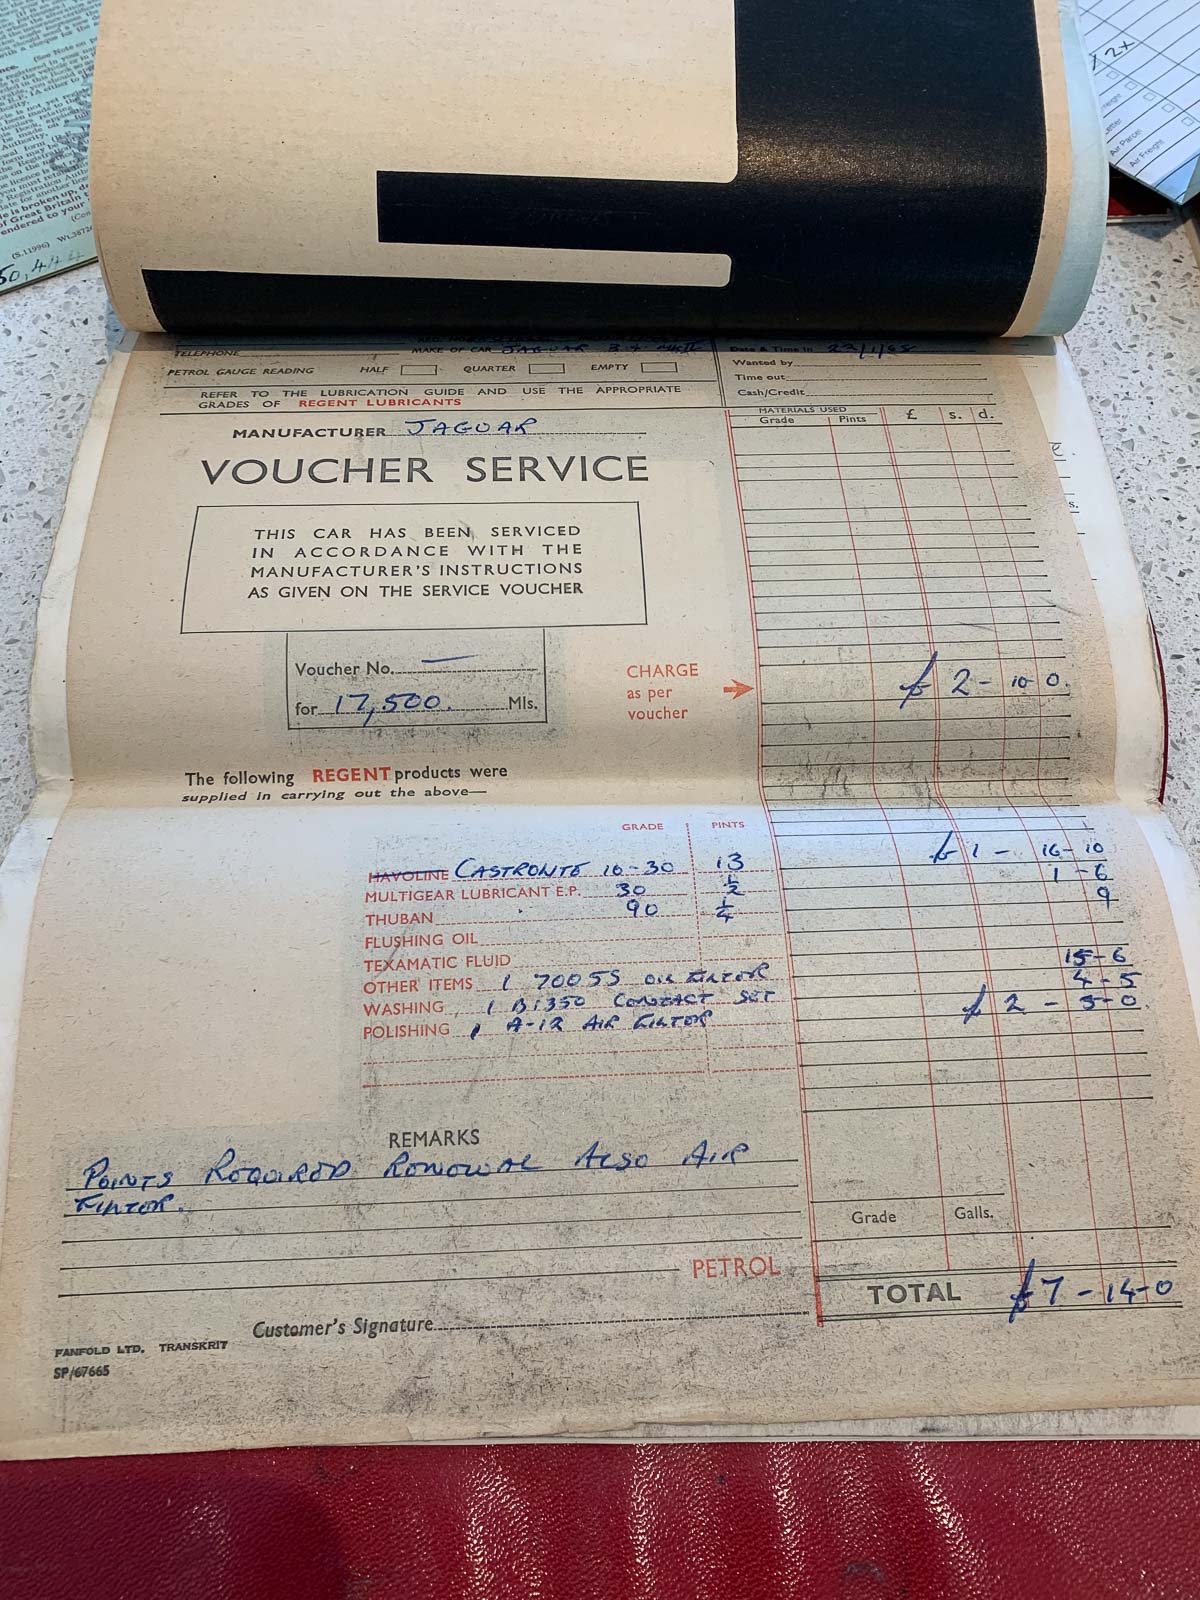 (See Note on p
is broken up, d
of Great Britain
endered to your
(S.11996) Wt.3872
50,444
12+
Air Parcel
Air Freight
TELEPHONE
MAKE OF CAR JAGUAR
Date & Time in
PETROL GAUGE READING HALF QUARTER EMPTY
Wanted by
Time out
Cash/Credit
REFER TO THE LUBRICATION GUIDE AND USE THE APPROPRIATE
GRADES OF REGENT LUBRICANTS
MATERIALS USED
Grade Pints £ s. d.
MANUFACTURER JAGUAR
VOUCHER SERVICE
THIS CAR HAS BEEN SERVICED
IN ACCORDANCE WITH THE
MANUFACTURER'S INSTRUCTIONS
AS GIVEN ON THE SERVICE VOUCHER
Voucher No. —
for 17,500. Mls.
CHARGE
as per
voucher
£ 2 - 10 0.
The following REGENT products were
supplied in carrying out the above—
GRADE PINTS
HAVOLINE CASTROLITE 10-30 13 £ 1 - 16 - 10
MULTIGEAR LUBRICANT E.P. 30 ½ 1 - 6
THUBAN 90 ¼ 9
FLUSHING OIL
TEXAMATIC FLUID
OTHER ITEMS 1 7005S OIL FILTOR 15 - 6
WASHING 1 B1350 CONTACT SET 4 - 5
POLISHING 1 A-12 AIR FILTOR £ 2 - 5 - 0.
REMARKS
POINTS REQUIRED RENEWAL ALSO AIR
FILTOR.
Grade Galls.
PETROL
TOTAL £7 - 14 - 0
Customer's Signature
FANFOLD LTD. TRANSKRIT
SP/67665